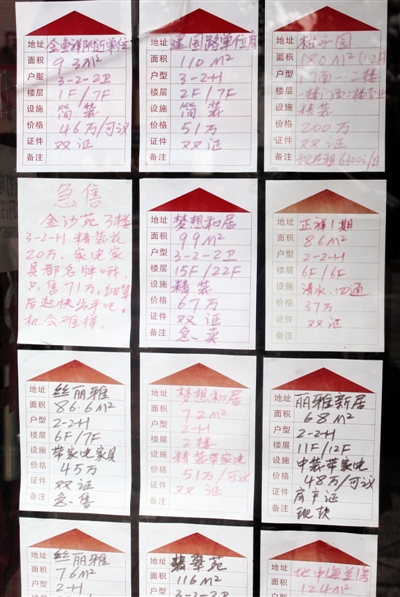 地址 金
面积 93m²
户型 3-2-2P
楼层 1F/7F
设施 简装
价格 46万/可议
证件 双证
备注
地址 建国路单位房
面积 110m²
户型 3-2-H
楼层 2F/7F
设施 简装
价格 51万
证件 双证
备注
地址 桔子园
面积 180m²
户型
楼层
设施 精装
价格 200万
证件 双证
备注 现在租6400元/月
急售
金沙苑 3楼
3-2-H 精装花
20万、家电家
具都名牌呀。
只售71万、
后赶快出手吧。
机会难得。
地址 梦想和居
面积 99m²
户型 3-2-2P
楼层 15F/22F
设施 精装
价格 67万
证件 双证
备注 急卖
地址 正祥1期
面积 86m²
户型 2-2-H
楼层 6F/6F
设施 清水、四通
价格 37万
证件 双证
备注
地址 丝丽雅
面积 86.6m²
户型 2-2-H
楼层 6F/7F
设施 带家电家具
价格 45万
证件 双证
备注 急售
地址 梦想和居
面积 72m²
户型 2-H
楼层 2楼
设施 精装带家电
价格 51万/可议
证件 双证
备注
地址 丽雅新居
面积 68m²
户型 2-2-H
楼层 11F/12F
设施 中装带家电
价格 48万/可议
证件 房产证
备注 现款
地址 丝丽雅
面积 76m²
户型 2-H
地址 翡翠苑
面积 116m²
户型 3-2-2P
地址 地中海蓝
面积 124m²
户型